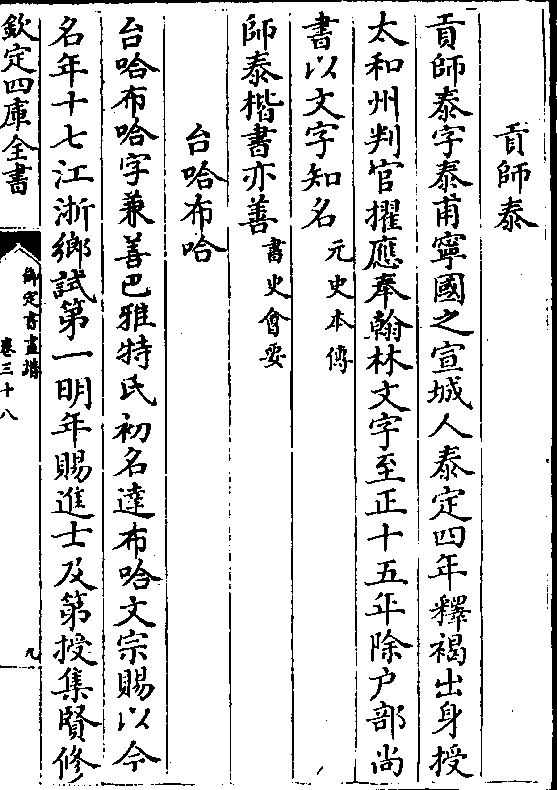 貢師泰
貢師泰字泰甫寧國之宣城人泰定四年釋褐出身授
太和州判官擢應奉翰林文字至正十五年除户部尚
書以文字知名元史本傳
師泰楷書亦善書史會要
台哈布哈
台哈布哈字兼善巴雅特氏初名達布哈文宗賜以今
名年十七江浙鄉試第一明年賜進士及第授集賢修
欽定四庫全書
御定書畫譜
卷三十八
九